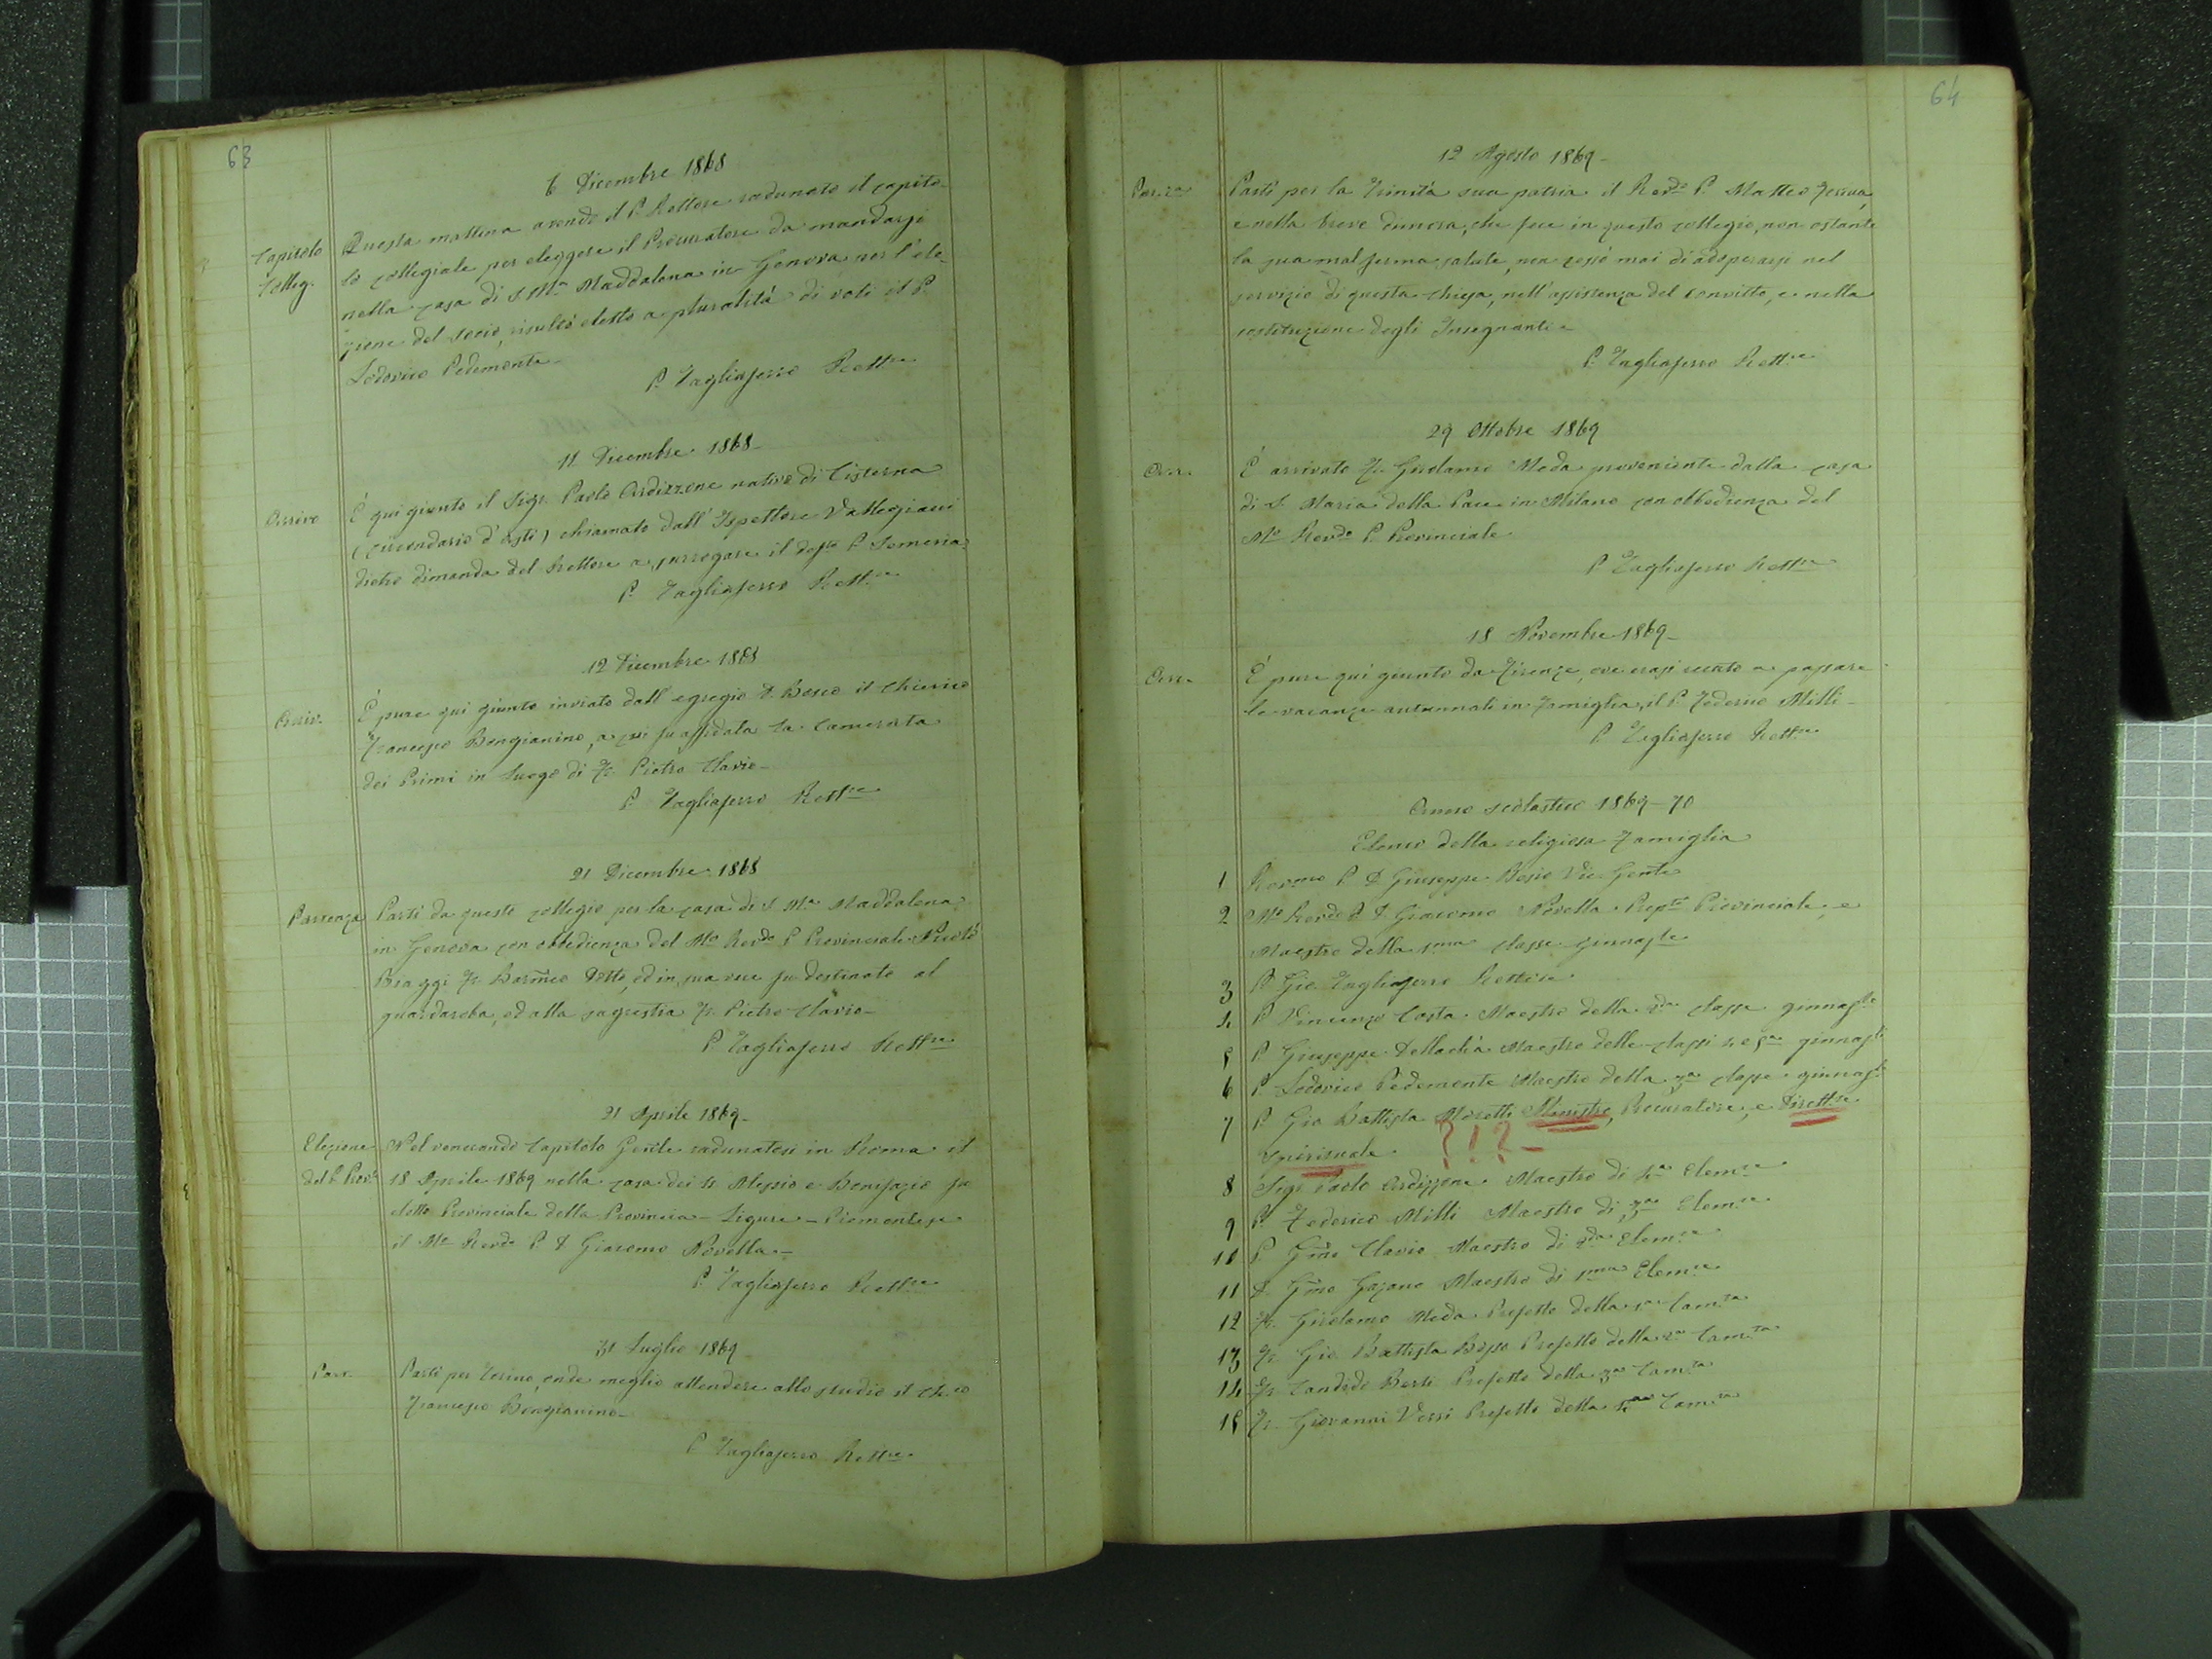 63
6 Dicembre 1868
Capitolo Colleg.
Questa mattina avendo il P. Rettore radunato il capito-
lo collegiale per eleggere il Procuratore da mandarsi
nella casa di S. Ma. Maddalena in Genova per l'ele-
zione del socio, risultò eletto a pluralità di voti il P.
Lodovico Pedemonte -
P. Tagliaferro Rettre
11 Dicembre 1868 -
Arrivo
È qui giunto il Sigr. Paolo Ardizzone nativo di Cisterna
(circondario d'Asti) chiamato dall'Ispettore Vallegiani
dietro dimanda del Rettore a surrogare il P. Semeria
P. Tagliaferro Rettre
12 Dicembre 1868
Arriv.
È pure qui giunto inviato dall'egregio D. Bosco il chierico
Francesco Bongianino, a cui fu affidata la camerata
dei Primi in luogo di Fr. Pietro Clavio -
P. Tagliaferro Rettre
21 Dicembre 1868
Partenza
Partì da questo collegio per la casa di S. Ma. Maddalena
in Genova con obbedienza del Mo. Revdo P. Provinciale Nicolò
Biaggi Fr. Barmeo Dotto, ed in sua vece fu destinato al
guardaroba, ed alla sagrestia Fr. Pietro Clavio -
P. Tagliaferro Rettre
21 Aprile 1869 -
Elezione del P. Provl.
Nel venerando Capitolo Genle radunatosi in Roma il
18 Aprile 1869 nella casa dei SS. Alessio e Bonifazio fu
eletto Provinciale della Provincia - Ligure - Piemontese
il Mo. Revdo P. D. Giacomo Novella -
P. Tagliaferro Rettre
31 Luglio 1869
Part.
Partì per Torino, onde meglio attendere allo studio il Ch.co
Francesco Bongianino -
P. Tagliaferro Rettre
64
12 Agosto 1869 -
Par.za
Partì per la Trinità sua patria il Revdo P. Matteo
e nella breve dimora, che fece in questo collegio, non ostante
la sua mal ferma salute, non cessò mai di adoperarsi nel
servizio di questa chiesa, nell'assistenza del convitto, e nella
sostituzione degli Insegnanti -
P. Tagliaferro Rettre
29 Ottobre 1869
Arr.
È arrivato Fr. Girolamo Meda proveniente dalla casa
di S. Maria della Pace in Milano con obbedienza del
Mo. Revdo P. Provinciale
P. Tagliaferro Rettre
18 Novembre 1869 -
Arr.
È pure qui giunto da Firenze, ove erasi recato a passare
le vacanze autunnali in famiglia, il P. Federico Milli -
P. Tagliaferro Rettre
Anno scolastico 1869 - 70
Elenco della religiosa famiglia
1 Revmo P. D. Giuseppe Besio Vic. Genle
2 Mo. Revdo P. D. Giacomo Novella Prepto Provinciale, e
Maestro della 1ma classe ginnasle
3 P. Gio. Tagliaferro Rettore
4 P. Vincenzo Costa Maestro della 2da classe ginnasle
5 P. Giuseppe Dellachà Maestro delle classi 4 e 5a ginnasli
6 P. Lodovico Pedemonte Maestro della 3a classe ginnasle
7 P. Gio Battista Moretti Ministro, Procuratore, e Direttre
Spirituale. ? ! ? -
8 Sigr. Paolo Ardizzone Maestro di 4a Elemre
9 P. Federico Milli Maestro di 3a Elemre
10 P. Gmo Clavio Maestro di 2da Elemre
11 D. Gmo Gazano Maestro di 1ma Elemre
12 Fr. Girolamo Meda Prefetto della 1a Camta
13 Fr. Gio Battista Bosso Prefetto della 2a Camta
14 Fr. Candido Berti Prefetto della 3a Camta
15 Fr. Giovanni Vessi Prefetto della 4a Camta